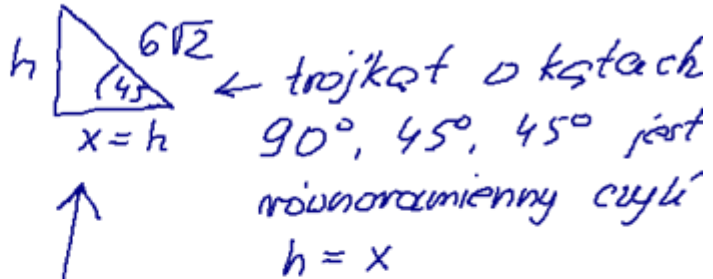 h 6√2
(45 ← trójkąt o kątach
x = h 90°, 45°, 45° jest
równoramienny czyli
h = x